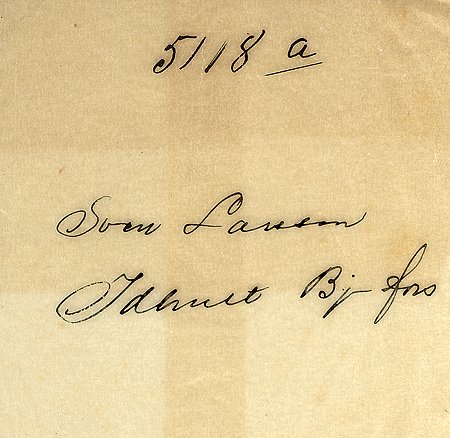 5118 a
Sven Larsson
Idhult Bj-fors